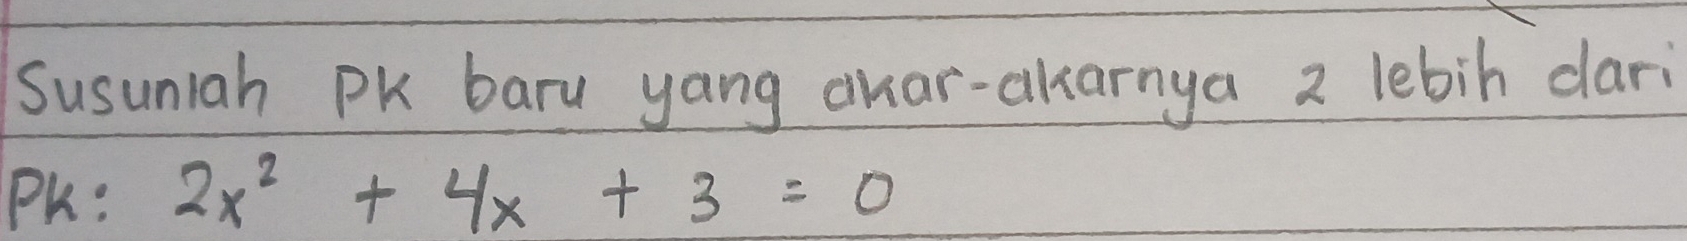 Susunlah PK baru yang akar-akarnya 2 lebih dari
PK: 2x² + 4x + 3 = 0